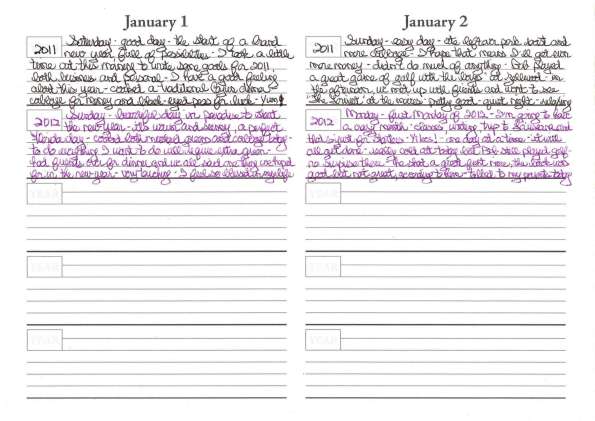 January 1
2011 Saturday - good day - the start of a brand
new year, full of possibilities - I took a little
time at this morning to write some goals for 2011,
both business and personal - I have a good feeling
about this year - cooked a traditional dinner
cabbage for money and black-eyed peas for luck - Yum!
2012 Sunday - beautiful day in paradise to start
the new year - it's warm and sunny, a perfect
Florida day - cooked both mustard greens and cabbage today -
to do everything I want to do will require extra green -
had friends over for dinner and we all said one thing we hoped
for in the new year - very touching - I feel so blessed in my life
YEAR
YEAR
YEAR
January 2
2011 Sunday - easy day - ate leftover pork roast and
more cabbage - I hope that means I'll get even
more money - didn't do much of anything - Bob played
a great game of golf with the boys at - in
the afternoon, we met up with friends and went to see
"The Tourist" at the movies - pretty good - quiet night - relaxing
2012 Monday - first Monday of 2012 - I'm going to have
a busy month - classes, writing, trip to and
that's just for starters - Yikes! - one day at a time - it will
all get done - really cold out today but Bob still played golf -
no surprise there - He shot a great first nine, the back was
good but not great, according to him - talked to my today
YEAR
YEAR
YEAR